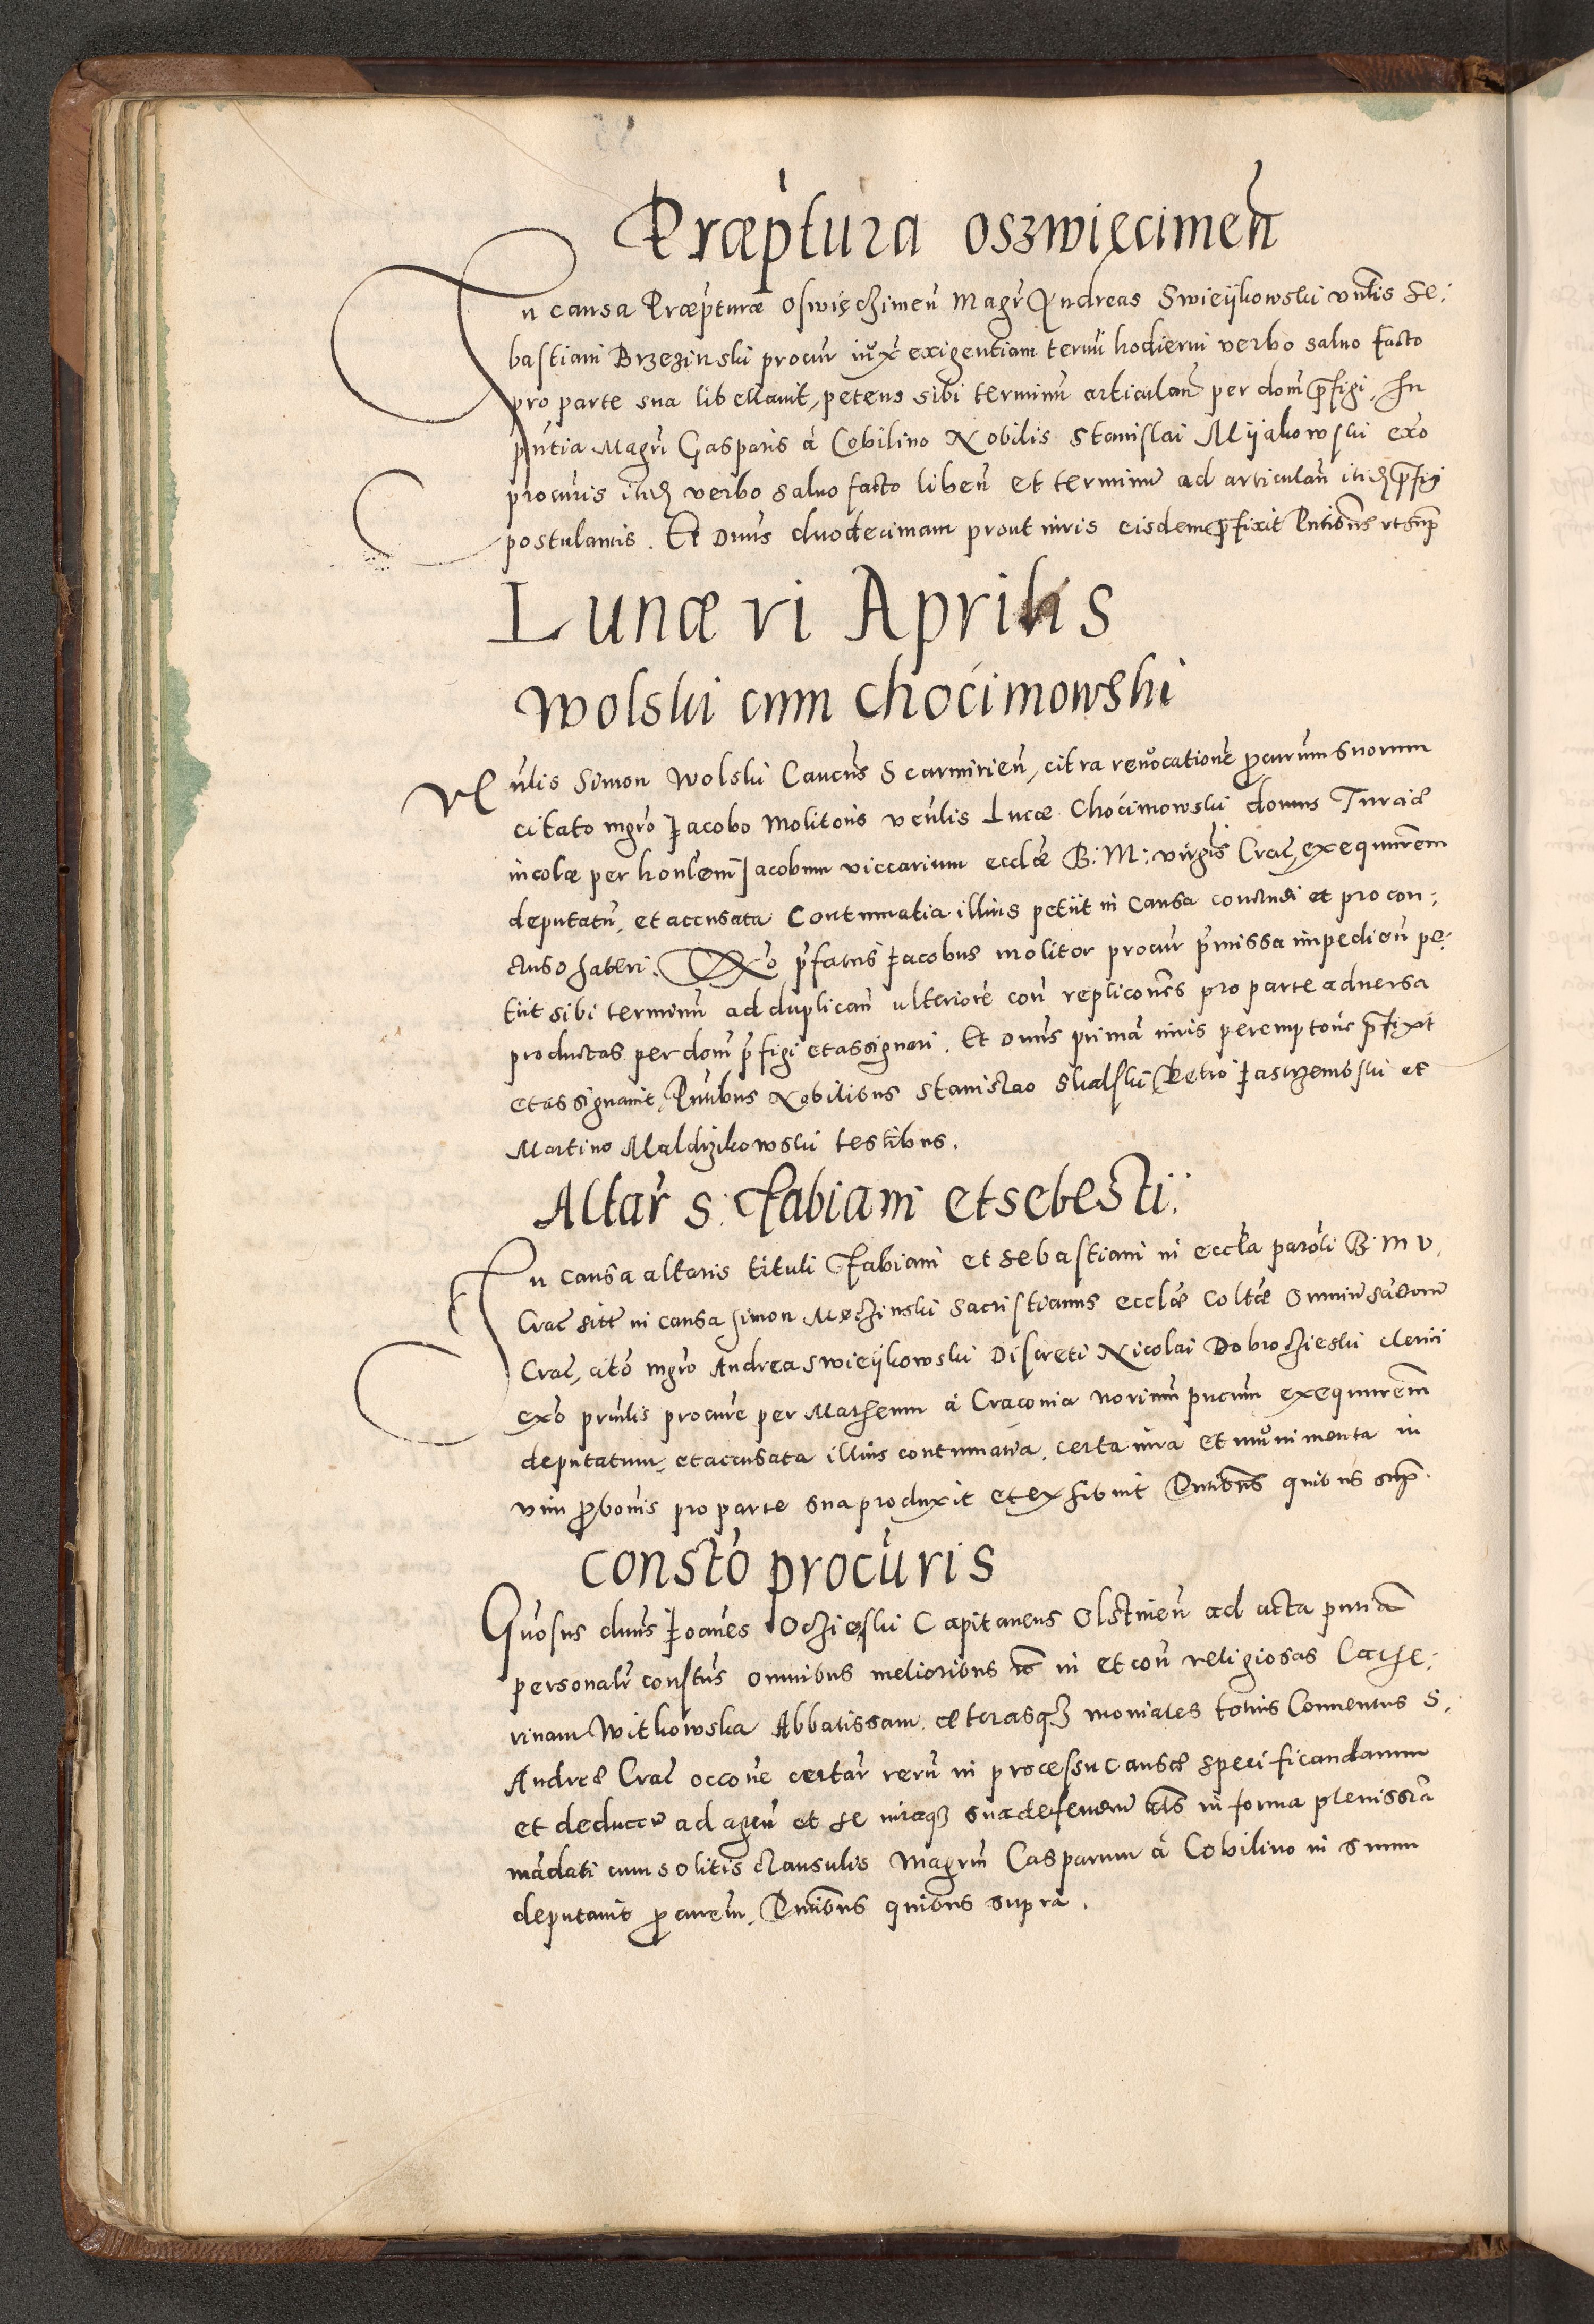 Præp̃tura oszwięcimen̄
In causa Præp̃turæ Oswięczimen̄ Magr̃ Andreas Swieijkowski vn̄lis Se:
bastiani Brzezinski procur̃ iux̃ exigentiam termi hodierni verbo saluo facto
pro parte sua libellauit, petens sibi terminū articulan̄ per dom̄ p̃figi, In
pn̄tia Magr̃i Gasparis à Cobilino Nobilis Stanislai Mijakowski ex̃o
procur̃is itid verbo saluo facto liben̄ et terminū ad articulan̄ itid p̃figi
postulantis. Et Dnūs duodecimam prout iuris eisdem p̃fixit Pn̄tibus vt sup̃
Lunæ vi Aprilis
Wolski cum Chocimowski
Vēn̄lis Simon Wolski Cancūs Scarmirien̄, citra reuocationē p̃curūm suorum
citato mgrõ Jacobo Molitoris veūlis Lucæ Chocimowski domus Turciæ
incolæ per honlem Jacobum viccarium eccl̃æ B: M: virgis̃ Crac̃, exequur̃em
deputatū, et accusata Contumatia illius petiit in Causa concludi et pro con:
cluso haberi. Ex̃o p̃fatus Jacobus molitor procur̃ p̃missa impedien̄ pe:
tiit sibi terminū ad duplican̄ ulteriorē con̄ replicoñes pro parte aduersa
productas per dom̄ p̃figi et assignari. Et Dnūs primā iuris peremptoriē p̃fixit
et assignauit, Pn̄tibus Nobilibus Stanislao Skalski Petro Jastrzembski et
Martino Maldrzikowski testibus.
Altar̃ S: Fabiani et sebesti:
In causa altaris tituli Fabiani et Sebastiani in eccl̃a paroli B. M V.
Crac̃ sitī in causa Simon Meczinski Sacristianus eccl̃æ Coltæ Omniū sanctorū
Crac̃, citõ mgrõ Andrea Swieijkowski Discreti Nicolai Dobrochieski clerici
ex̃o priūlis procur̃e per Matheum à Craconia notriū pūcum exequur̃em
deputatum, et accusata illius contumatia, certa iura et munimenta in
vim p̃bonis pro parte sua produxit et exhibuit Pn̄tibus quibus sup̃.
Constõ procur̃is
Gn̄osus dnūs Joanes Ocziески Capitaneus Olstinen̄ ad acta pn̄tia
personalr̃ constūs omnibus melioribus in et con̄ religiosas Cathe:
rinam Witkowska Abbatissam cæterasqȝ moniales totius Conuentus S.
Andreæ Crac̃ occoñe certar̃ rerū in processu causæ specificandarum
et deducē ad agen̄ et se iuraqȝ sua defenden̄ in forma plenissīa
mādati cum solitis clausulis Magrm̃ Casparum à Cobilino in suum
deputauit p̃curem, Pn̄tibus quibus supra.